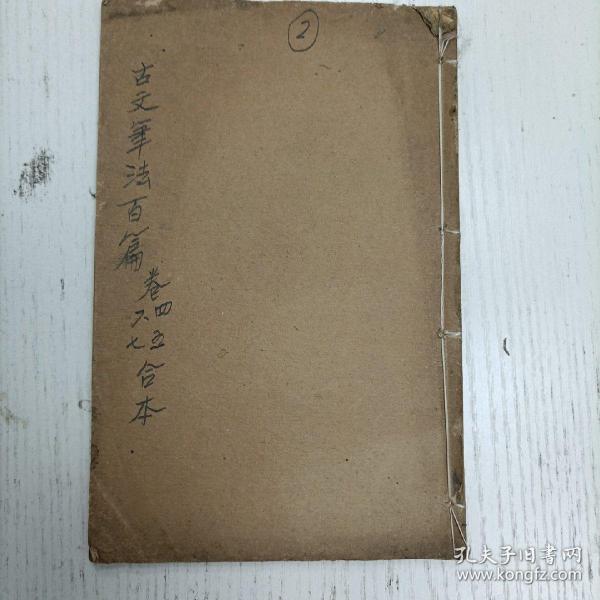 2
古文筆法百篇
卷四五
六七
合本
孔夫子旧书网
www.kongfz.com